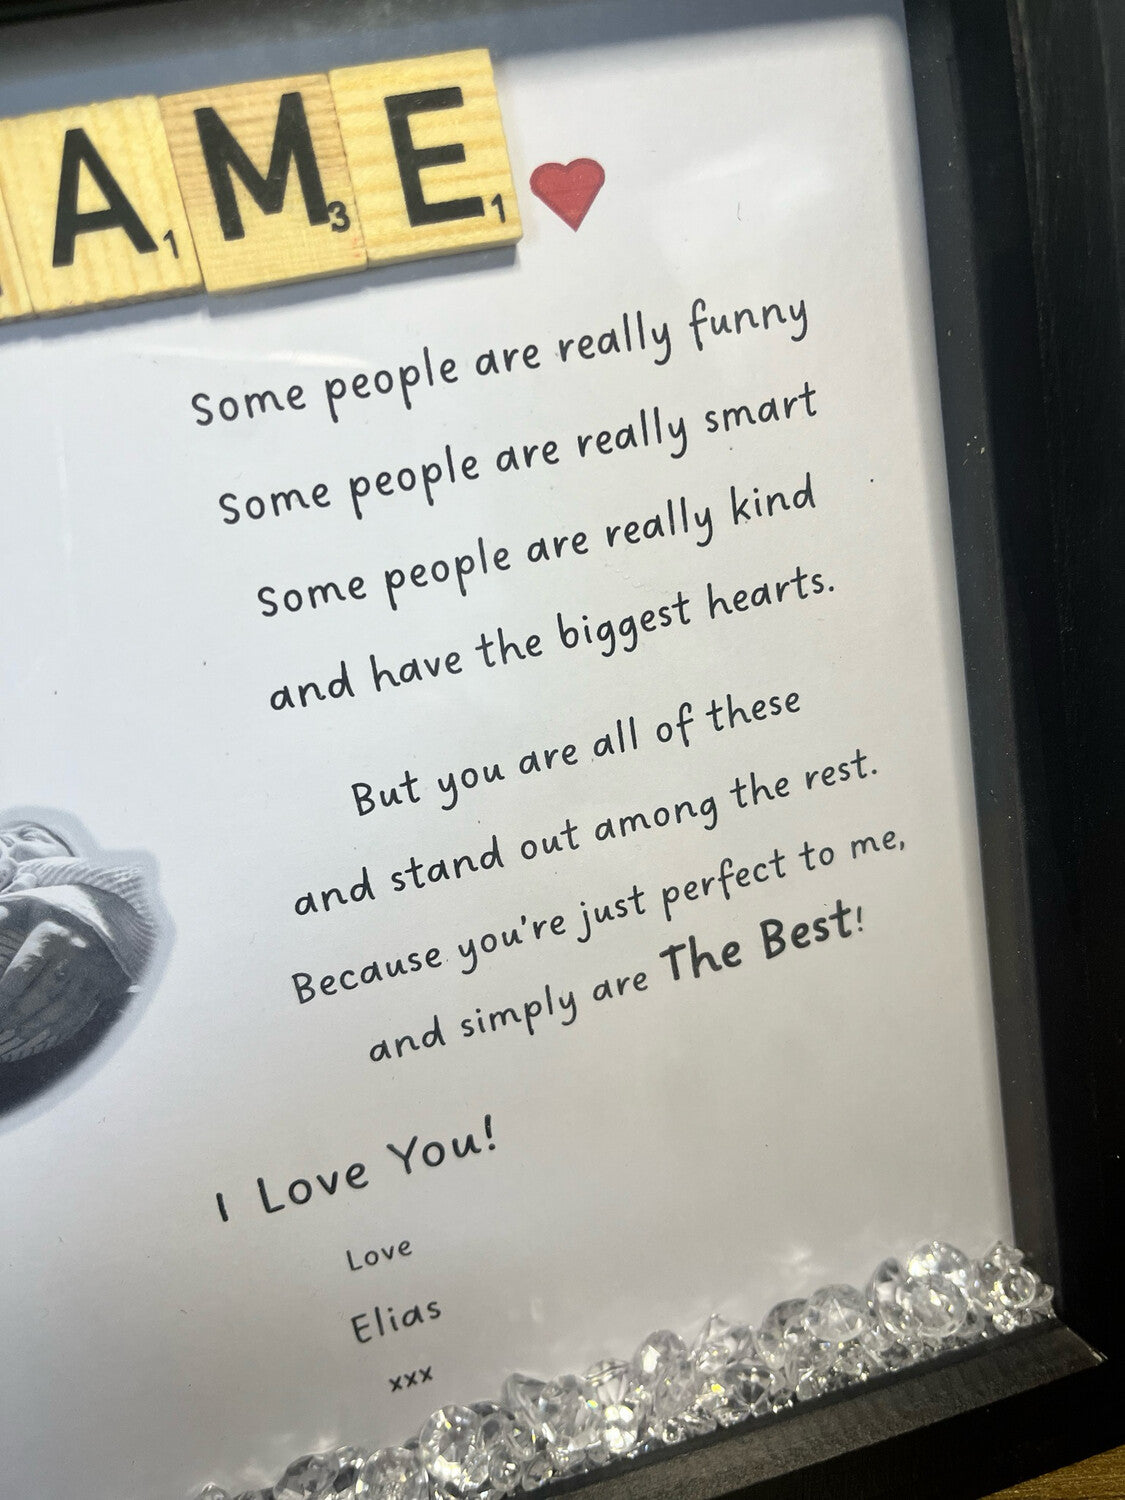 A1 M3 E1
Some people are really funny
Some people are really smart
Some people are really kind
and have the biggest hearts.
But you are all of these
and stand out among the rest.
Because you're just perfect to me,
and simply are The Best!
I Love You!
Love
Elias
xxx